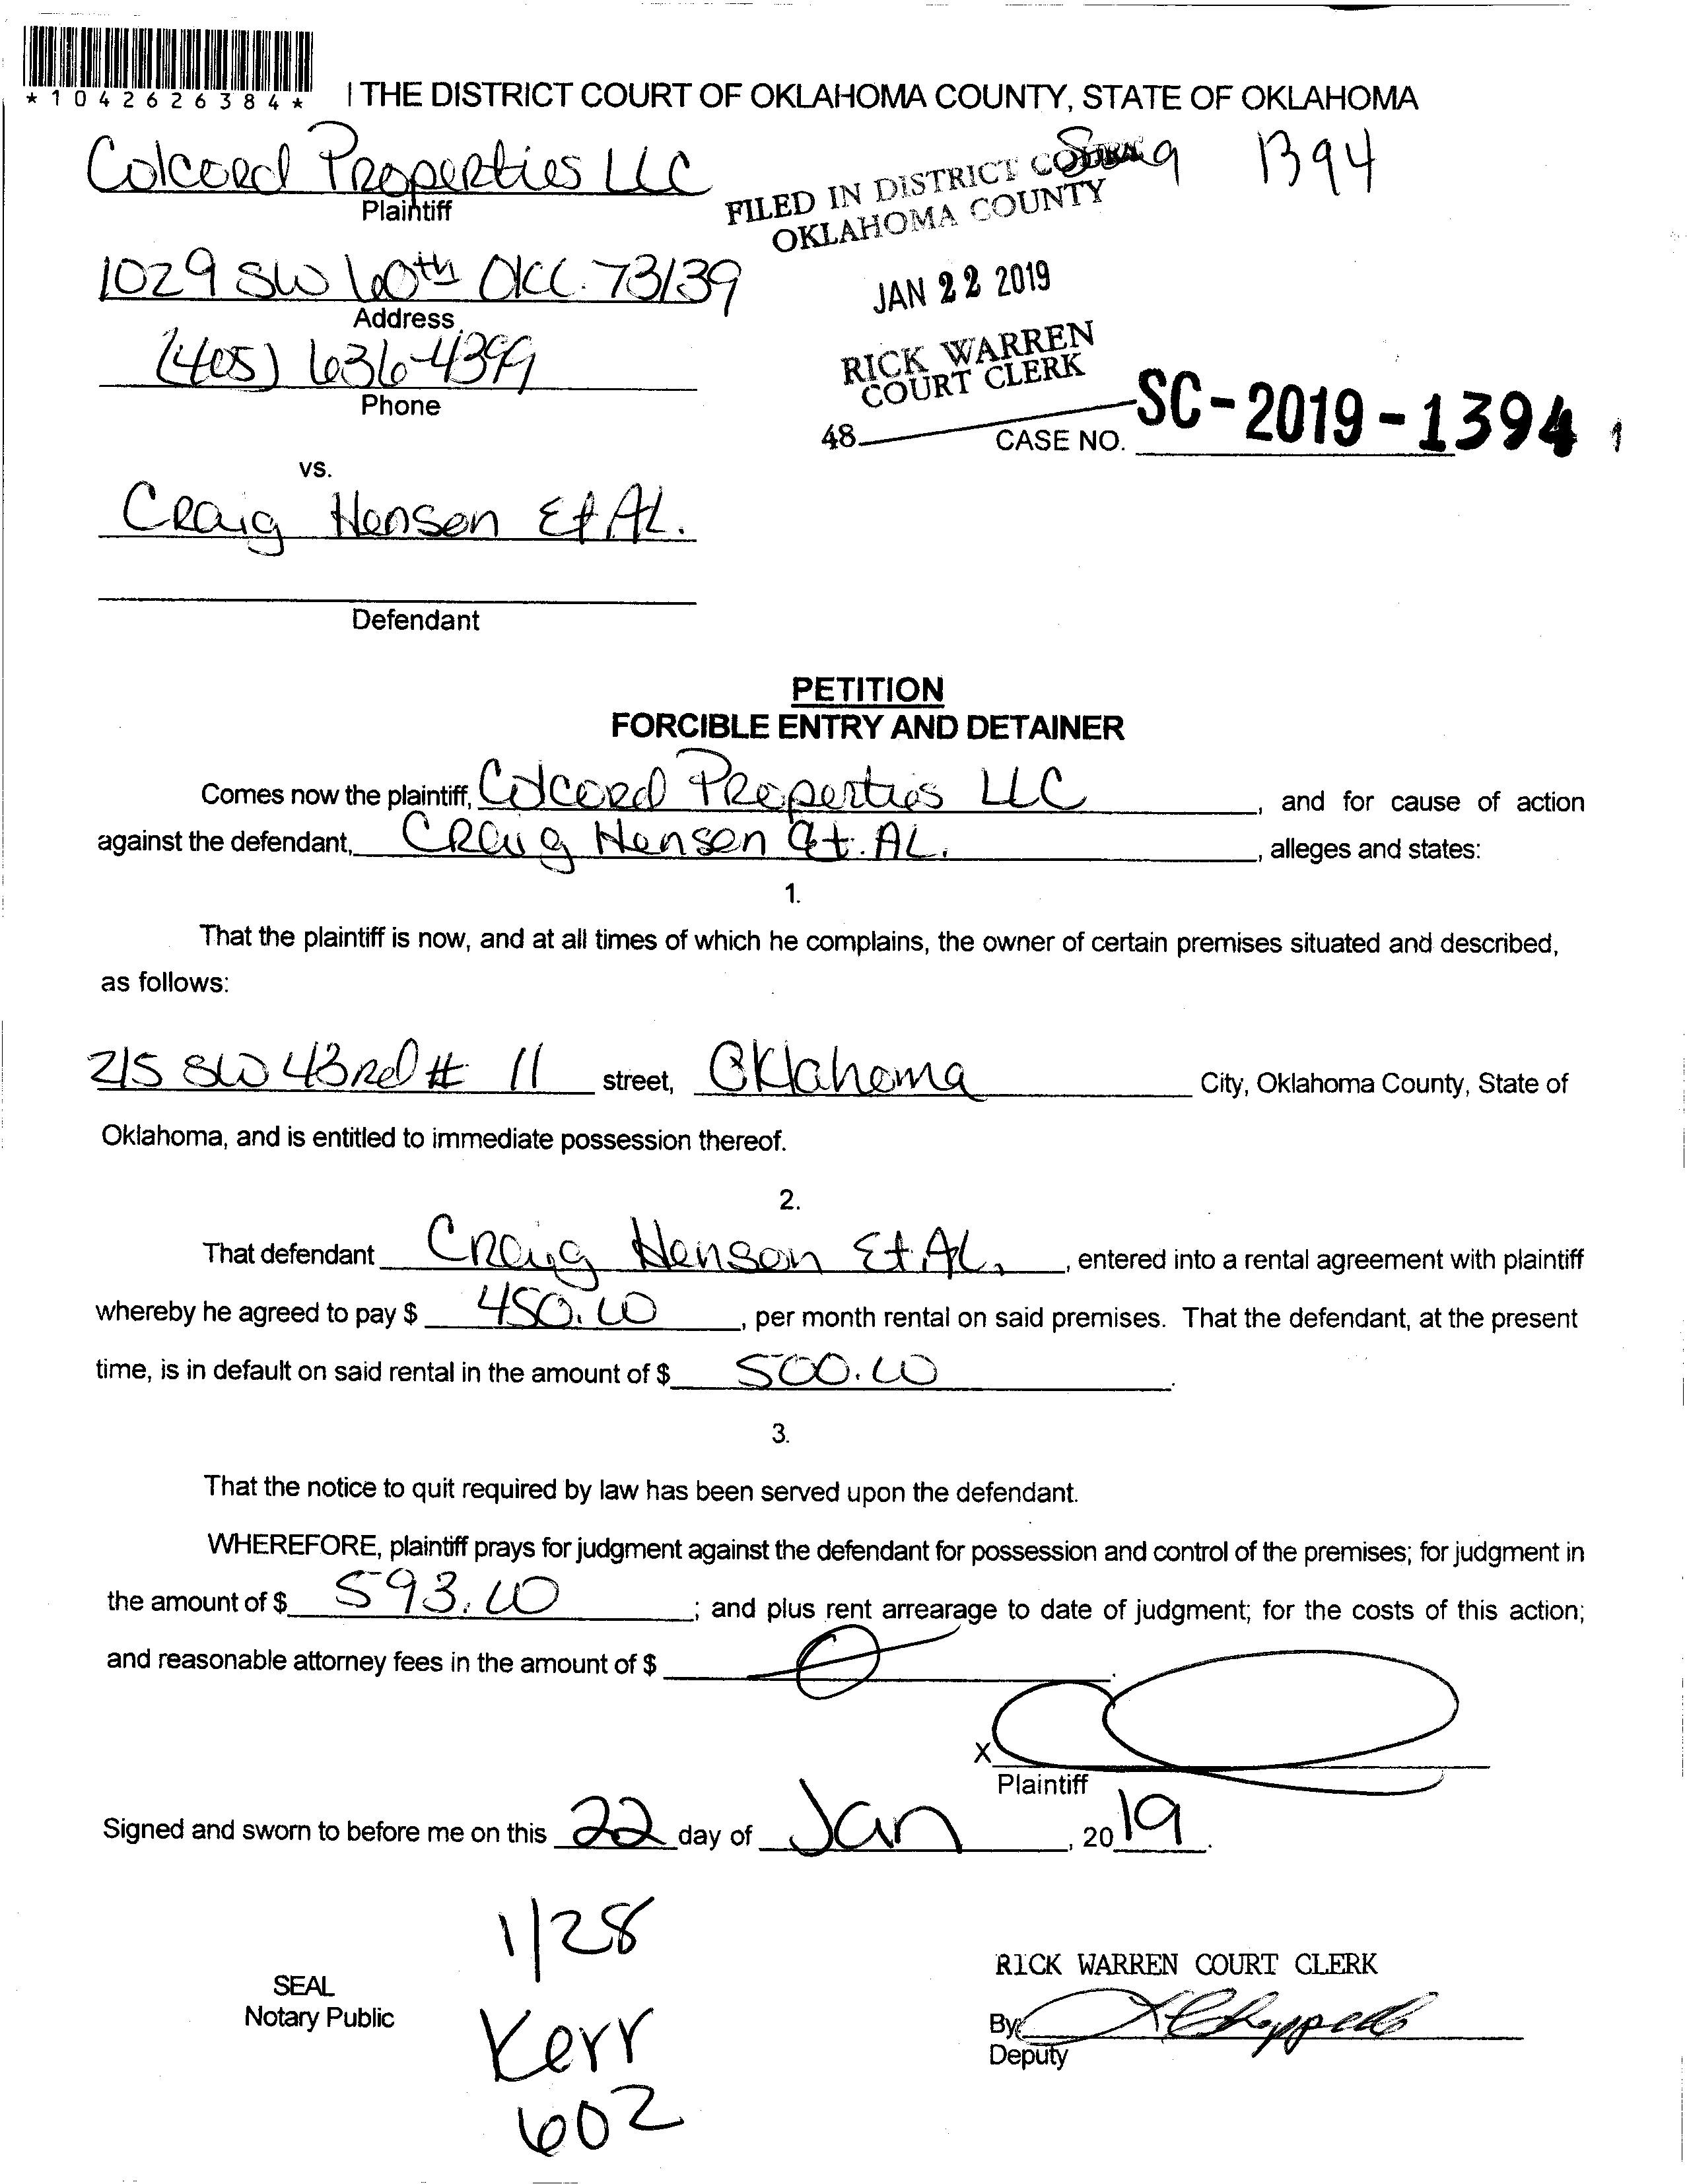 *1042626384*
THE DISTRICT COURT OF OKLAHOMA COUNTY, STATE OF OKLAHOMA
Colcord Properties LLC
Plaintiff
1394
FILED IN DISTRICT COURT
OKLAHOMA COUNTY
1029 SW 60th OKC. 73139
Address
JAN 22 2019
(405) 636-4399
Phone
RICK WARREN
COURT CLERK
48
CASE NO. SC-2019-1394
vs.
Craig Henson Et AL.
Defendant
PETITION
FORCIBLE ENTRY AND DETAINER
Comes now the plaintiff, Colcord Properties LLC, and for cause of action
against the defendant, Craig Henson et. AL., alleges and states:
1.
That the plaintiff is now, and at all times of which he complains, the owner of certain premises situated and described,
as follows:
215 SW 43rd # 11 street, Oklahoma City, Oklahoma County, State of
Oklahoma, and is entitled to immediate possession thereof.
2.
That defendant Craig Henson Et AL., entered into a rental agreement with plaintiff
whereby he agreed to pay $ 450.00, per month rental on said premises. That the defendant, at the present
time, is in default on said rental in the amount of $ 500.00.
3.
That the notice to quit required by law has been served upon the defendant.
WHEREFORE, plaintiff prays for judgment against the defendant for possession and control of the premises; for judgment in
the amount of $ 593.00; and plus rent arrearage to date of judgment; for the costs of this action;
and reasonable attorney fees in the amount of $ 0.
X
Plaintiff
Signed and sworn to before me on this 22 day of Jan, 2019.
1/28
SEAL
Notary Public
Kerr
602
RICK WARREN COURT CLERK
By
Deputy